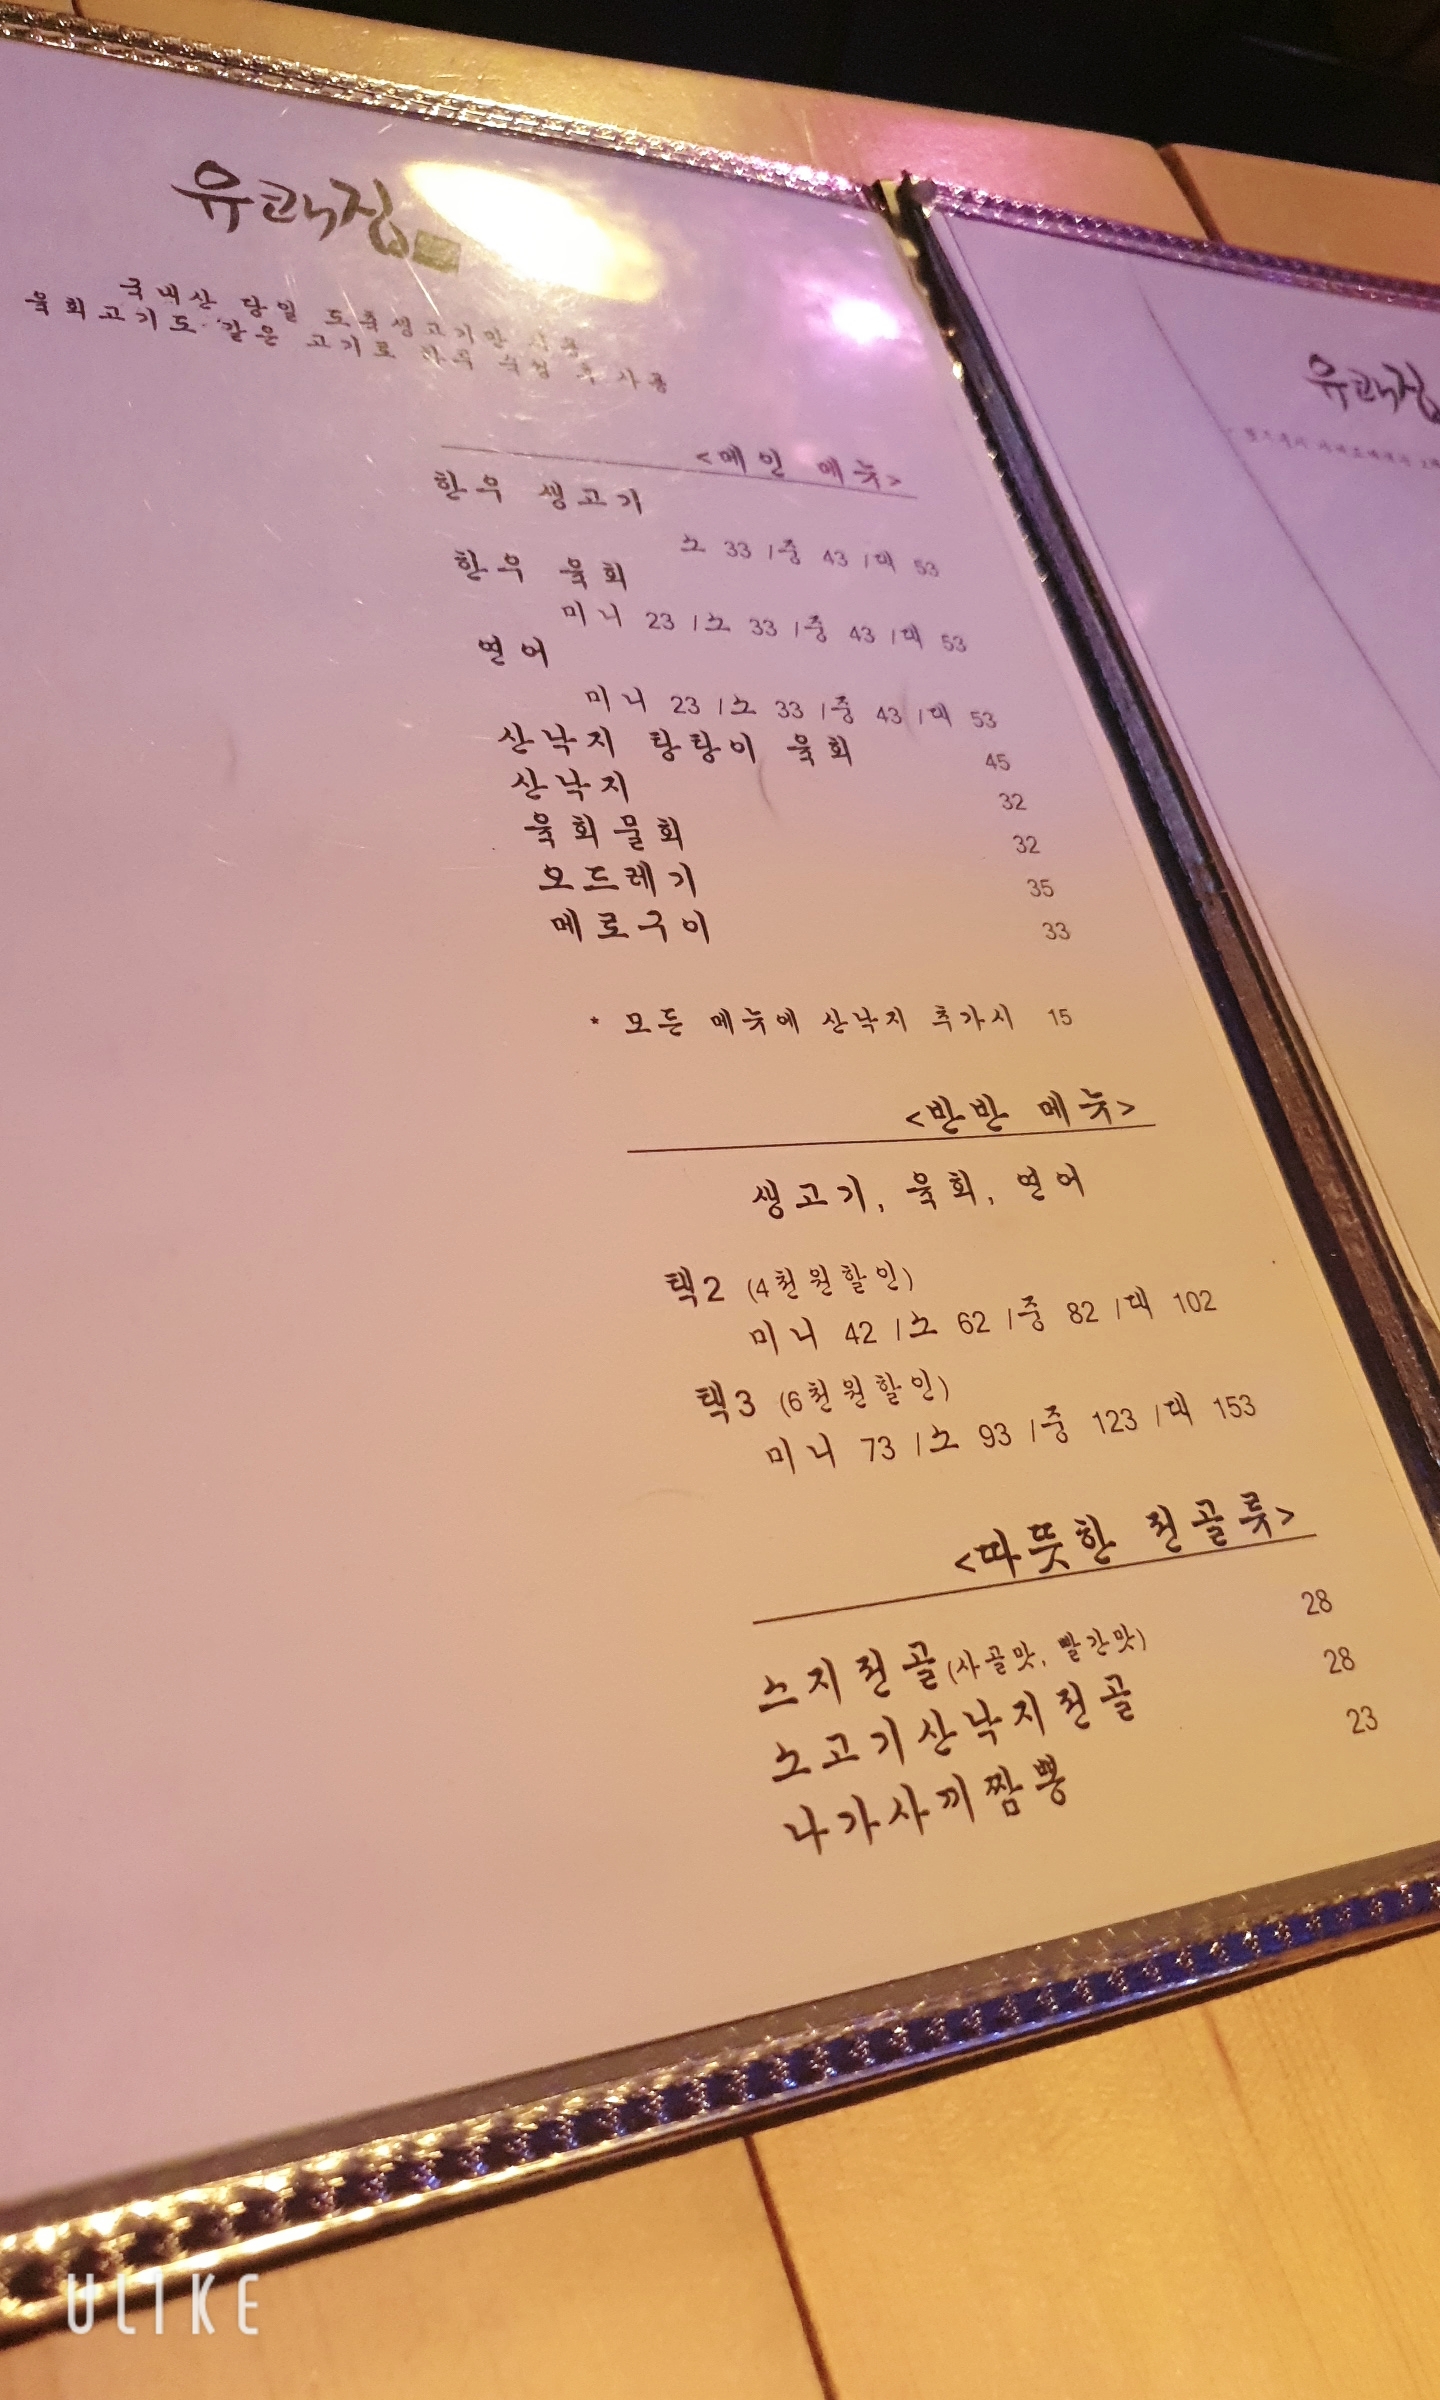 유쾌집
국내산 당일 도축생고기만 사용
육회고기도 같은 고기로 하루 숙성 후 사용
<메인 메뉴>
한우 생고기
소 33 /중 43 /대 53
한우 육회
미니 23 /소 33 /중 43 /대 53
연어
미니 23 /소 33 /중 43 /대 53
산낙지 탕탕이 육회 45
산낙지 32
육회물회 32
오드레기 35
메로구이 33
* 모든 메뉴에 산낙지 추가시 15
<반반 메뉴>
생고기, 육회, 연어
택2 (4천원할인)
미니 42 /소 62 /중 82 /대 102
택3 (6천원할인)
미니 73 /소 93 /중 123 /대 153
<따뜻한 전골류>
스지전골(사골맛, 빨간맛) 28
소고기산낙지전골 28
나가사끼짬뽕 23
유쾌집
ULIKE